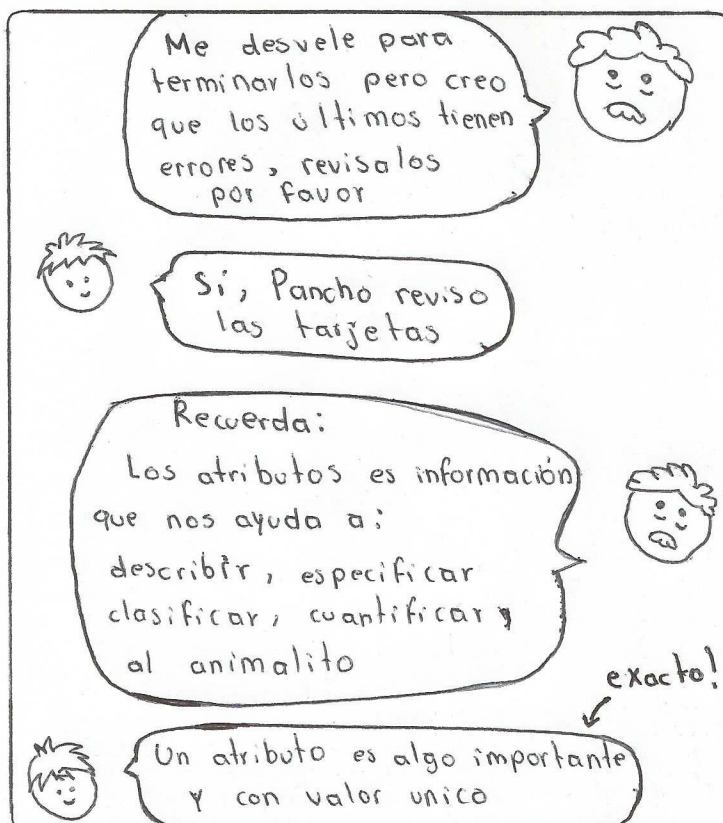 Me desvele para
terminarlos pero creo
que los últimos tienen
errores, revisalos
por favor
Sí, Pancho reviso
las tarjetas
Recuerda:
Los atributos es información
que nos ayuda a:
describir, especificar
clasificar, cuantificar y
al animalito
exacto!
Un atributo es algo importante
y con valor unico